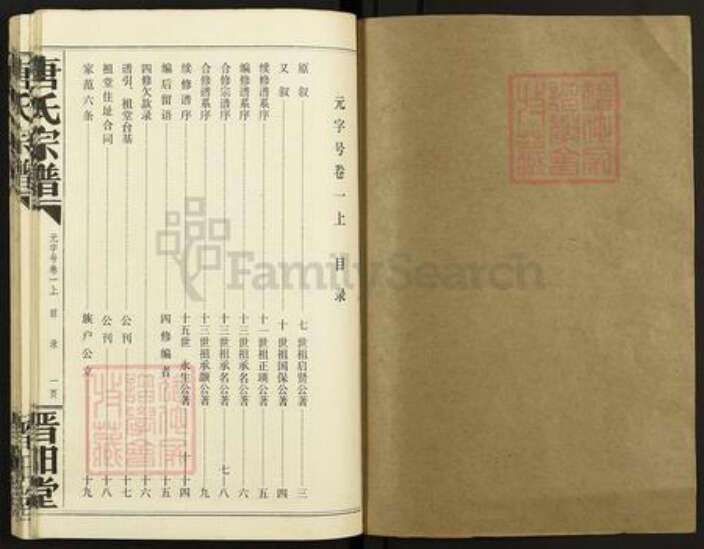 元字号卷一上 目录
原叙 七世祖启贤公著 三
又叙 十世祖国保公著 四
续修谱系序 十一世祖正瑛公著 五
编修谱系序 十三世祖承名公著 六
合修宗谱序 十三世祖承名公著 七-八
合修谱系序 十三世祖承灏公著 九
续修谱序 十五世 永生公著 十-十四
编后留语 四修编者 十五
四修欠款录 十六
谱引、祖堂台基 公刊 十七
祖堂住址合同 公刊 十八
家范六条 族户公立 十九
唐氏宗谱
元字号卷一上 目录 一页
晋阳堂
FamilySearch